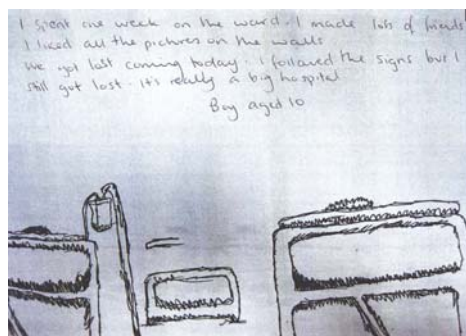 I spent one week on the ward. I made lots of friends
I liked all the pictures on the walls
We got lost coming today. I followed the signs but I
still got lost. It's really a big hospital
Boy aged 10